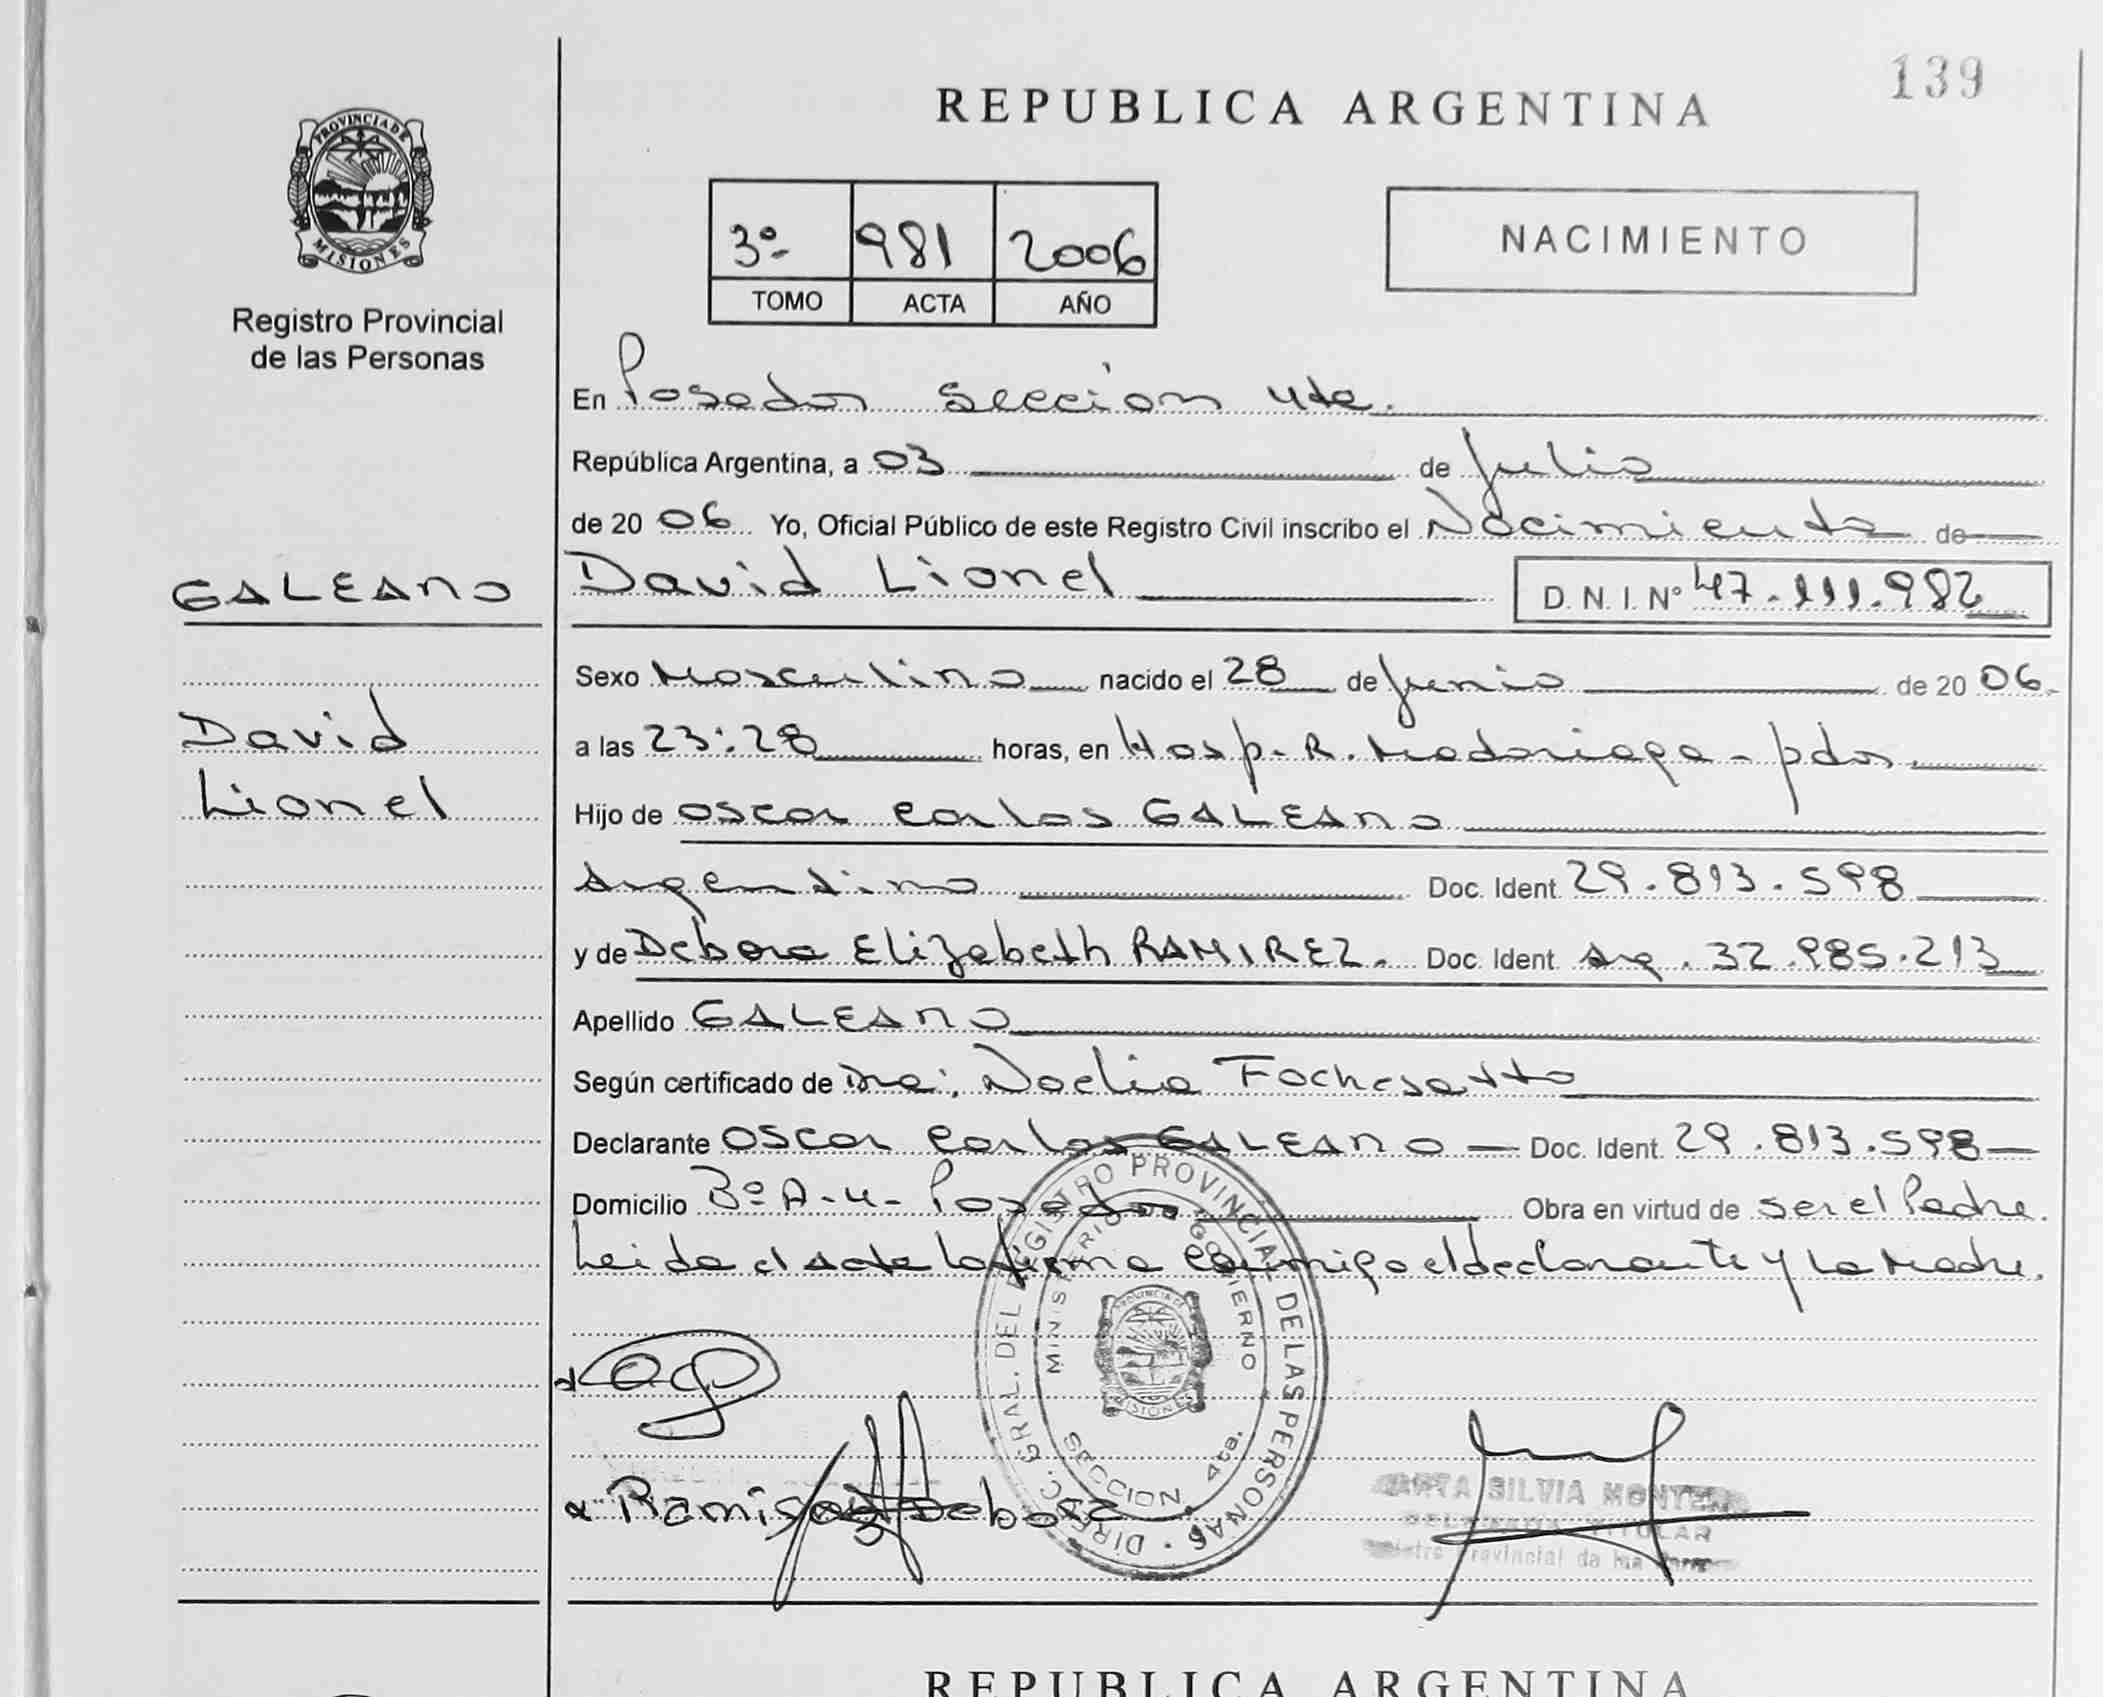 139
REPUBLICA ARGENTINA
PROVINCIA DE
MISIONES
Registro Provincial
de las Personas
3º 981 2006
TOMO ACTA AÑO
NACIMIENTO
En Posadas sección 4ta.
República Argentina, a 03 de Julio
de 20 06 Yo, Oficial Público de este Registro Civil inscribo el Nacimiento de
GALEANO
David Lionel D. N. I. Nº 47.111.982
Sexo Masculino nacido el 28 de Junio de 20 06
David
Lionel
a las 23:28 horas, en Hosp. R. Madariaga - pdas
Hijo de Oscar Carlos GALEANO
Argentino Doc. Ident. 29.813.598
y de Debora Elizabeth RAMIREZ. Doc. Ident. Arg. 32.985.213
Apellido GALEANO
Según certificado de Dra. Noelia Fochesatto
Declarante Oscar Carlos GALEANO Doc. Ident. 29.813.598
Domicilio Bº A-4- Posadas Obra en virtud de ser el Padre.
Leida el acta la firma conmigo el declarante y la Madre.
DIRECC. GRAL. DEL REGISTRO PROVINCIAL DE LAS PERSONAS
MINISTERIO DE GOBIERNO
PROVINCIA DE
MISIONES
SECCION 4ta.
Ramirez Debora
SILVIA
TITULAR
Provincial de las
REPUBLICA ARGENTINA